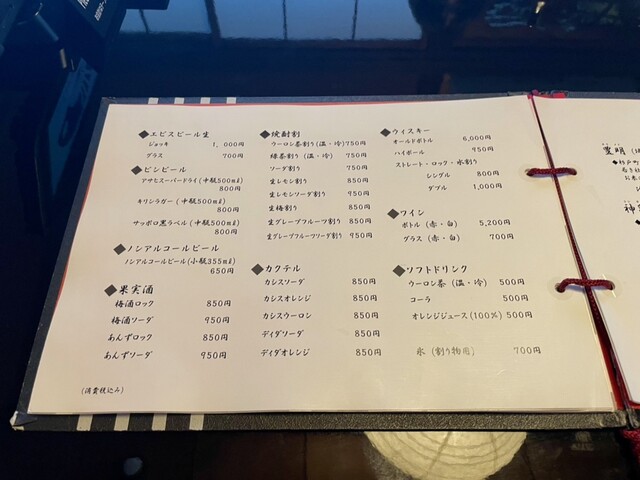 ◆エビスビール生
ジョッキ 1,000円
グラス 700円
◆ビンビール
アサヒスーパードライ(中瓶500㎖)
800円
キリンラガー(中瓶500㎖)
800円
サッポロ黒ラベル(中瓶500㎖)
800円
◆ノンアルコールビール
ノンアルコールビール(小瓶355㎖)
650円
◆果実酒
梅酒ロック 850円
梅酒ソーダ 950円
あんずロック 850円
あんずソーダ 950円
(消費税込み)
◆焼酎割
ウーロン茶割り(温・冷)750円
緑茶割り(温・冷) 750円
ソーダ割り 750円
生レモン割り 850円
生レモンソーダ割り 950円
生梅割り 850円
生グレープフルーツ割り 850円
生グレープフルーツソーダ割り 950円
◆カクテル
カシスソーダ 850円
カシスオレンジ 850円
カシスウーロン 850円
ディタソーダ 850円
ディタオレンジ 850円
◆ウィスキー
オールドボトル 6,000円
ハイボール 950円
ストレート・ロック・水割り
シングル 800円
ダブル 1,000円
◆ワイン
ボトル(赤・白) 5,200円
グラス(赤・白) 700円
◆ソフトドリンク
ウーロン茶(温・冷) 500円
コーラ 500円
オレンジジュース(100%)500円
氷(割り物用) 700円
豊明
神